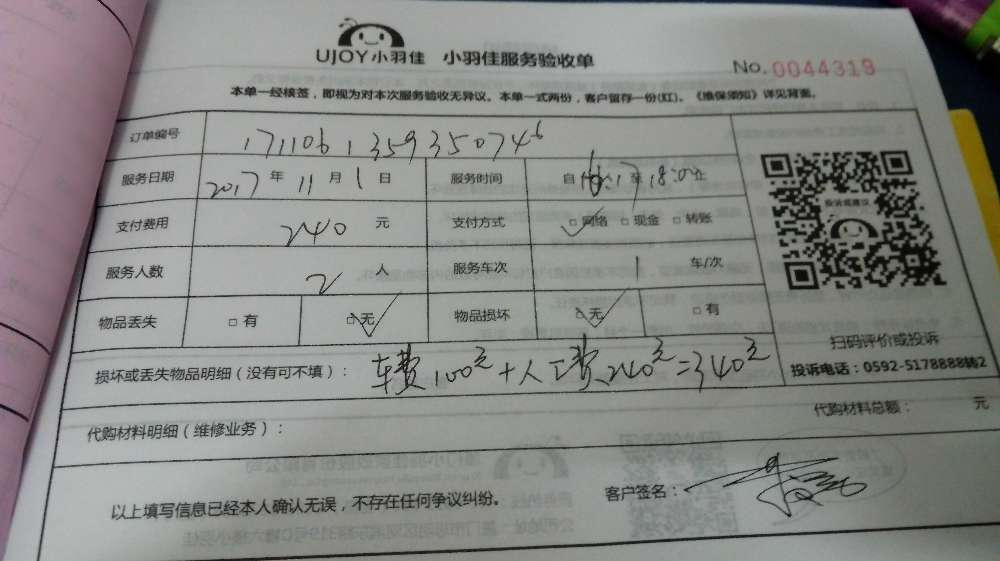 UJOY小羽佳 小羽佳服务验收单
No.0044319
本单一经核签，即视为对本次服务验收无异议。本单一式两份，客户留存一份(红)。《维保须知》详见背面。
订单编号 1711061359350746
服务日期 2017年11月1日 服务时间 自 至18:00止
支付费用 240 元 支付方式 ☑网络 □现金 □转账
服务人数 2 人 服务车次 1 车/次
物品丢失 □有 ☑无 物品损坏 ☑无 □有
投诉或建议
扫码评价或投诉
投诉电话：0592-5178888转2
损坏或丢失物品明细（没有可不填）：车费100元+人工费240元=340元
代购材料明细（维修业务）： 代购材料总额： 元
以上填写信息已经本人确认无误，不存在任何争议纠纷。 客户签名：